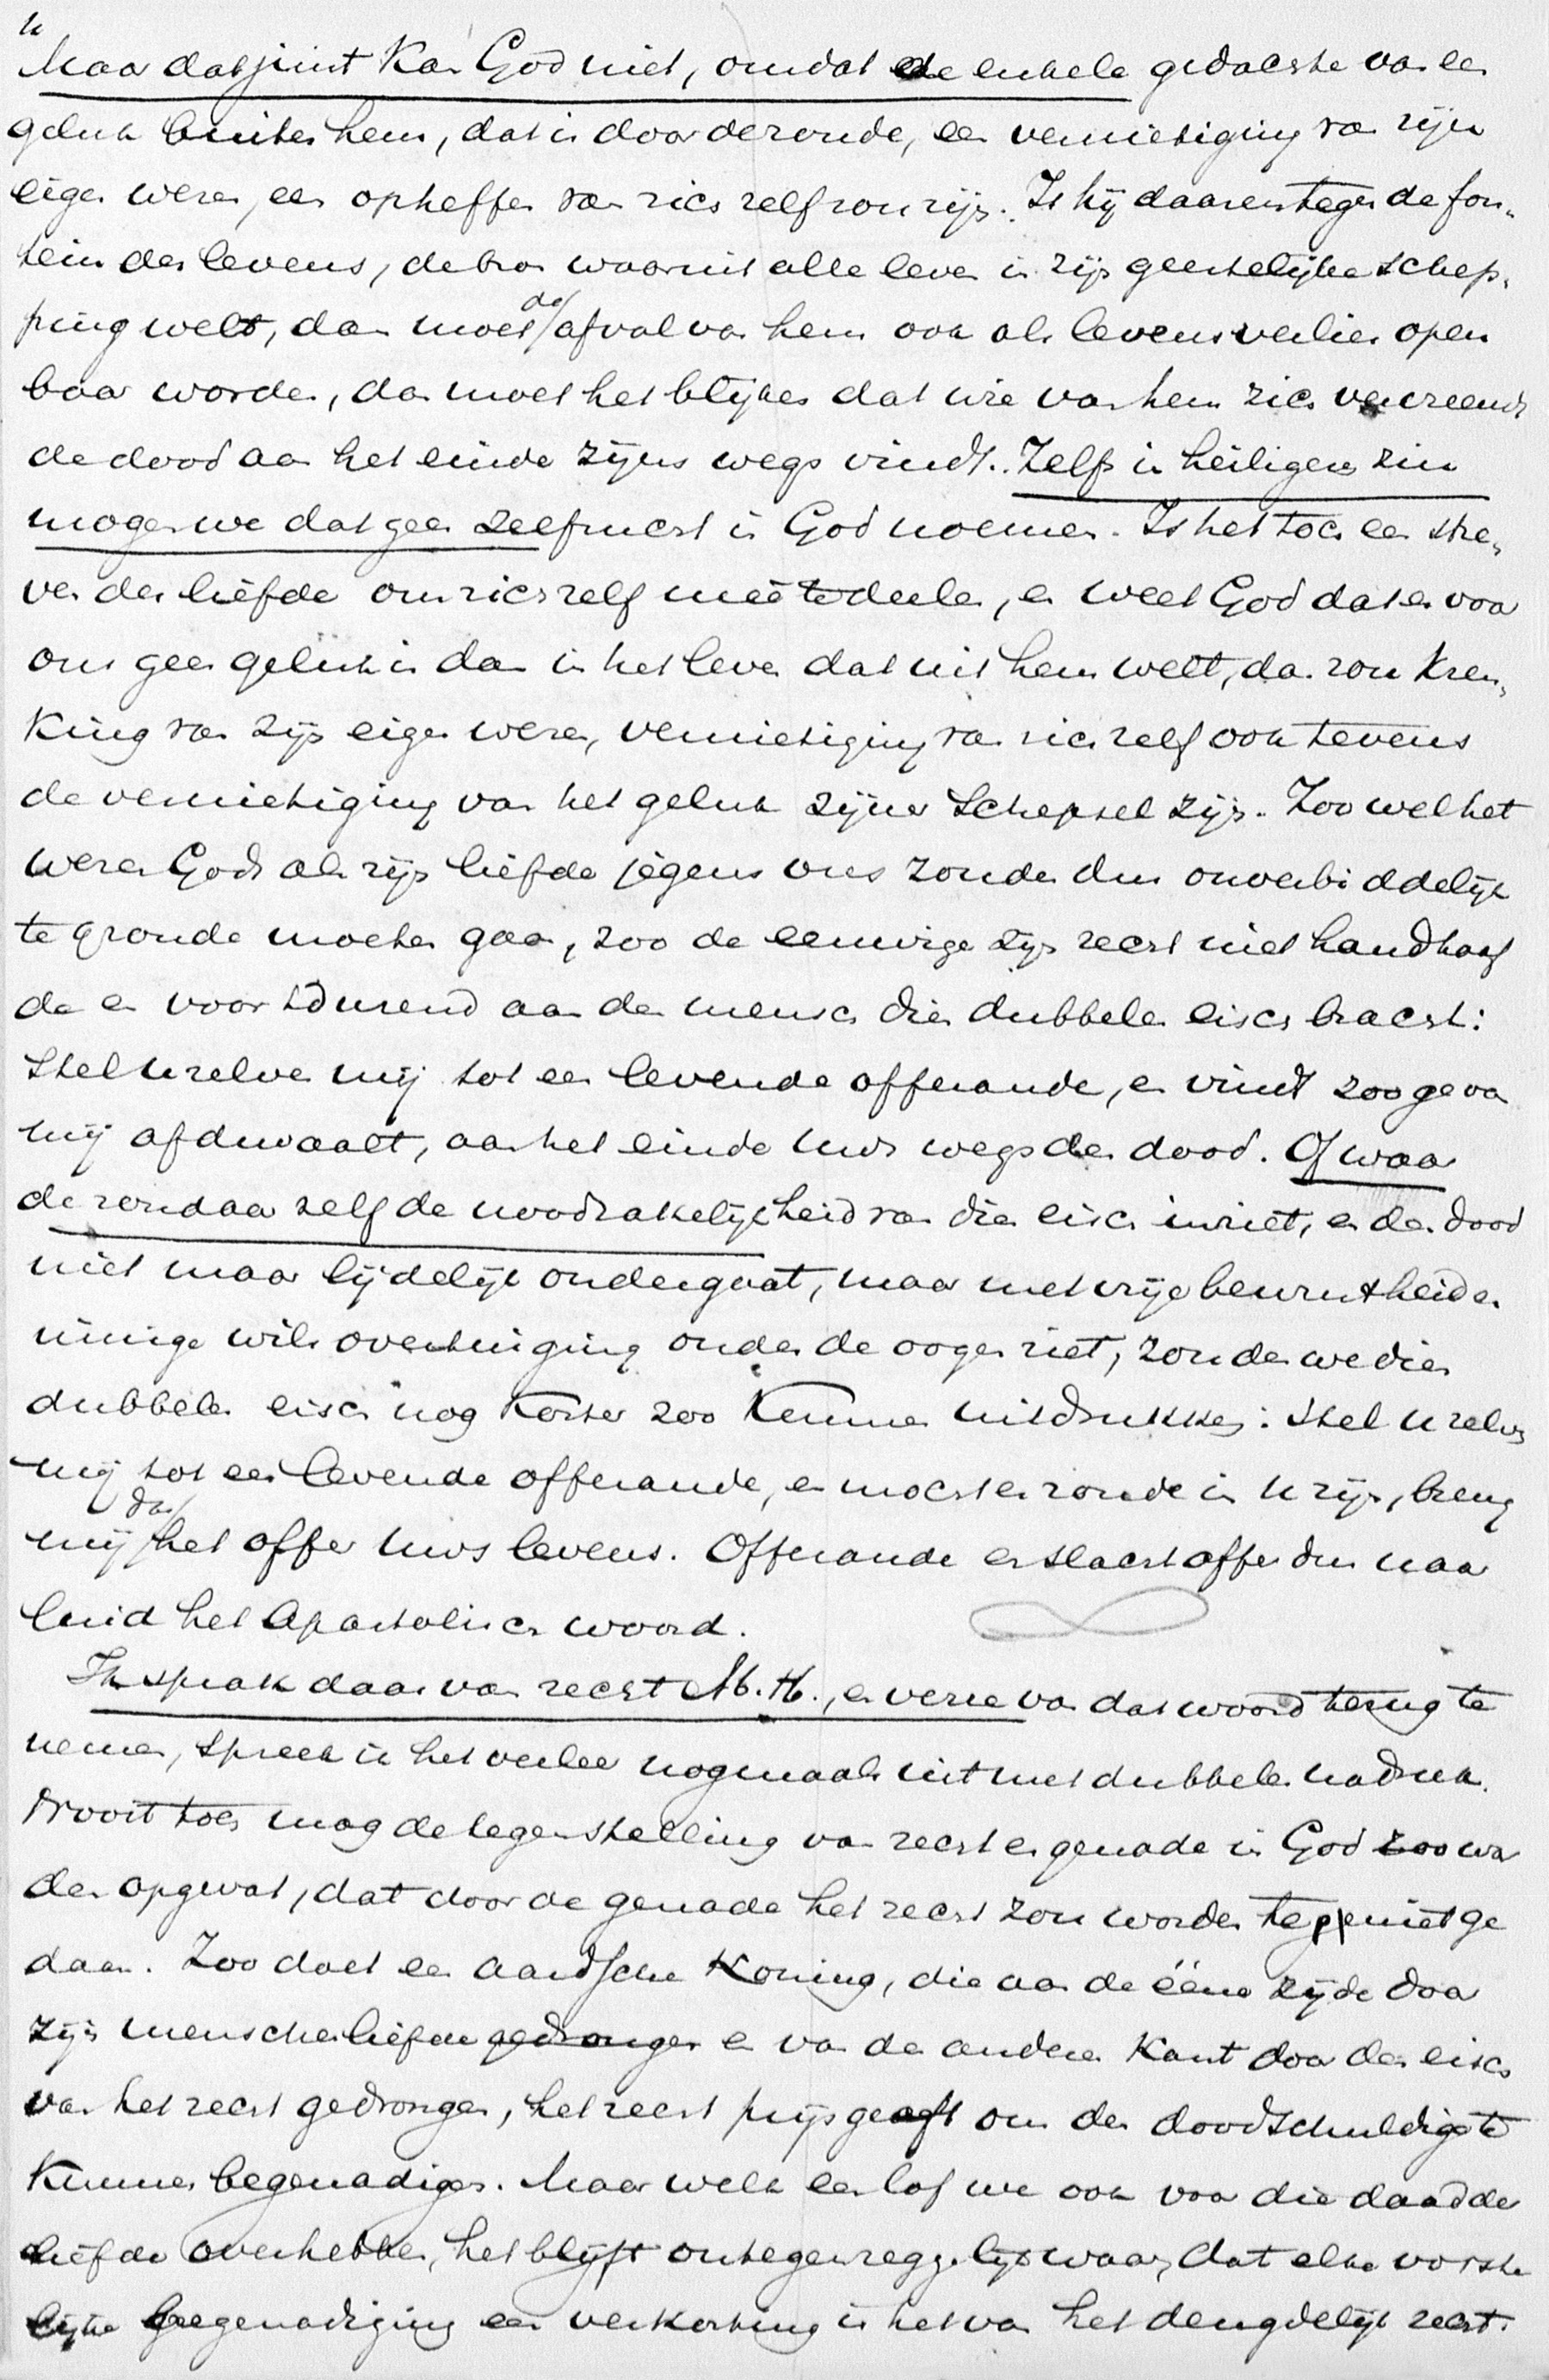 u
Maar dat juist kan God niet, omdat de enkele gedachte van een
geluk buiten hem, dat is door de zonde, een vernietiging van zijn
eigen wezen, een opheffen van zich zelf zou zijn. Is hij daarentegen de fon-
tein des levens, de bron waaruit alle leven in zijn geestelijke schep-
ping welt, dan moet de afval van hem ook als levensverlies open
baar worden, dan moet het blijken dat wie van hem zich vervreemdt
de dood aan het einde zijns wegs vindt. Zelfs in heiligen zin
mogen we dat geen zelfzucht in God noemen. Is het toch een stre-
ven der liefde om zich zelf meê te deelen, en weet God dat er voor
ons geen geluk is dan in het leven dat uit hem welt, dan zou kren-
king van zijn eigen wezen, vernietiging van zich zelf ook tevens
de vernietiging van het geluk zijner schepsel zijn. Zoowel het
wezen Gods als zijn liefde jegens ons zouden dus onverbiddelijk
te gronde moeten gaan, zoo de eeuwige zijn recht niet handhaaf
de en voortdurend aan den mensch dien dubbelen eisch bracht:
Stel uzelven mij tot een levende offerande, en vindt zoo ge van
mij afdwaalt, aan het einde uws wegs den dood. Of waar
de zondaar zelf de noodzakelijkheid van dien eisch inziet, en den dood
niet maar lijdelijk ondergaat, maar met vrije bewustheid en
innige wilsovertuiging onder de oogen ziet, zouden we dien
dubbelen eisch nog korter zoo kunnen uitdrukken: stel u zelven
mij tot een levende offerande, en mocht er zonde in u zijn, breng
mij dan het offer uws levens. Offerande en slachtoffer dus naar
luid het Apostolisch woord.
Ik sprak daar van recht M. H., en verre van dat woord terug te
nemen, spreek ik het veeleer nogmaals uit met dubbelen nadruk.
Nooit toch mag de tegenstelling van recht en genade in God zoo wor
den opgevat, dat door de genade het recht zou worden te niet ge
daan. Zoo doet een aardsche Koning, die aan de ééne zijde door
zijn menschenliefde gedrongen en van de andere kant door den eisch
van het recht gedrongen, het recht prijsgeeft om den doodschuldige te
kunnen begenadigen. Maar welk een lof we ook voor die daad der
liefde overhebben, het blijft ontegenzeggelijk waar, dat elke vorste
lijke begenadiging een verkorting is het van het deugdelijk recht.